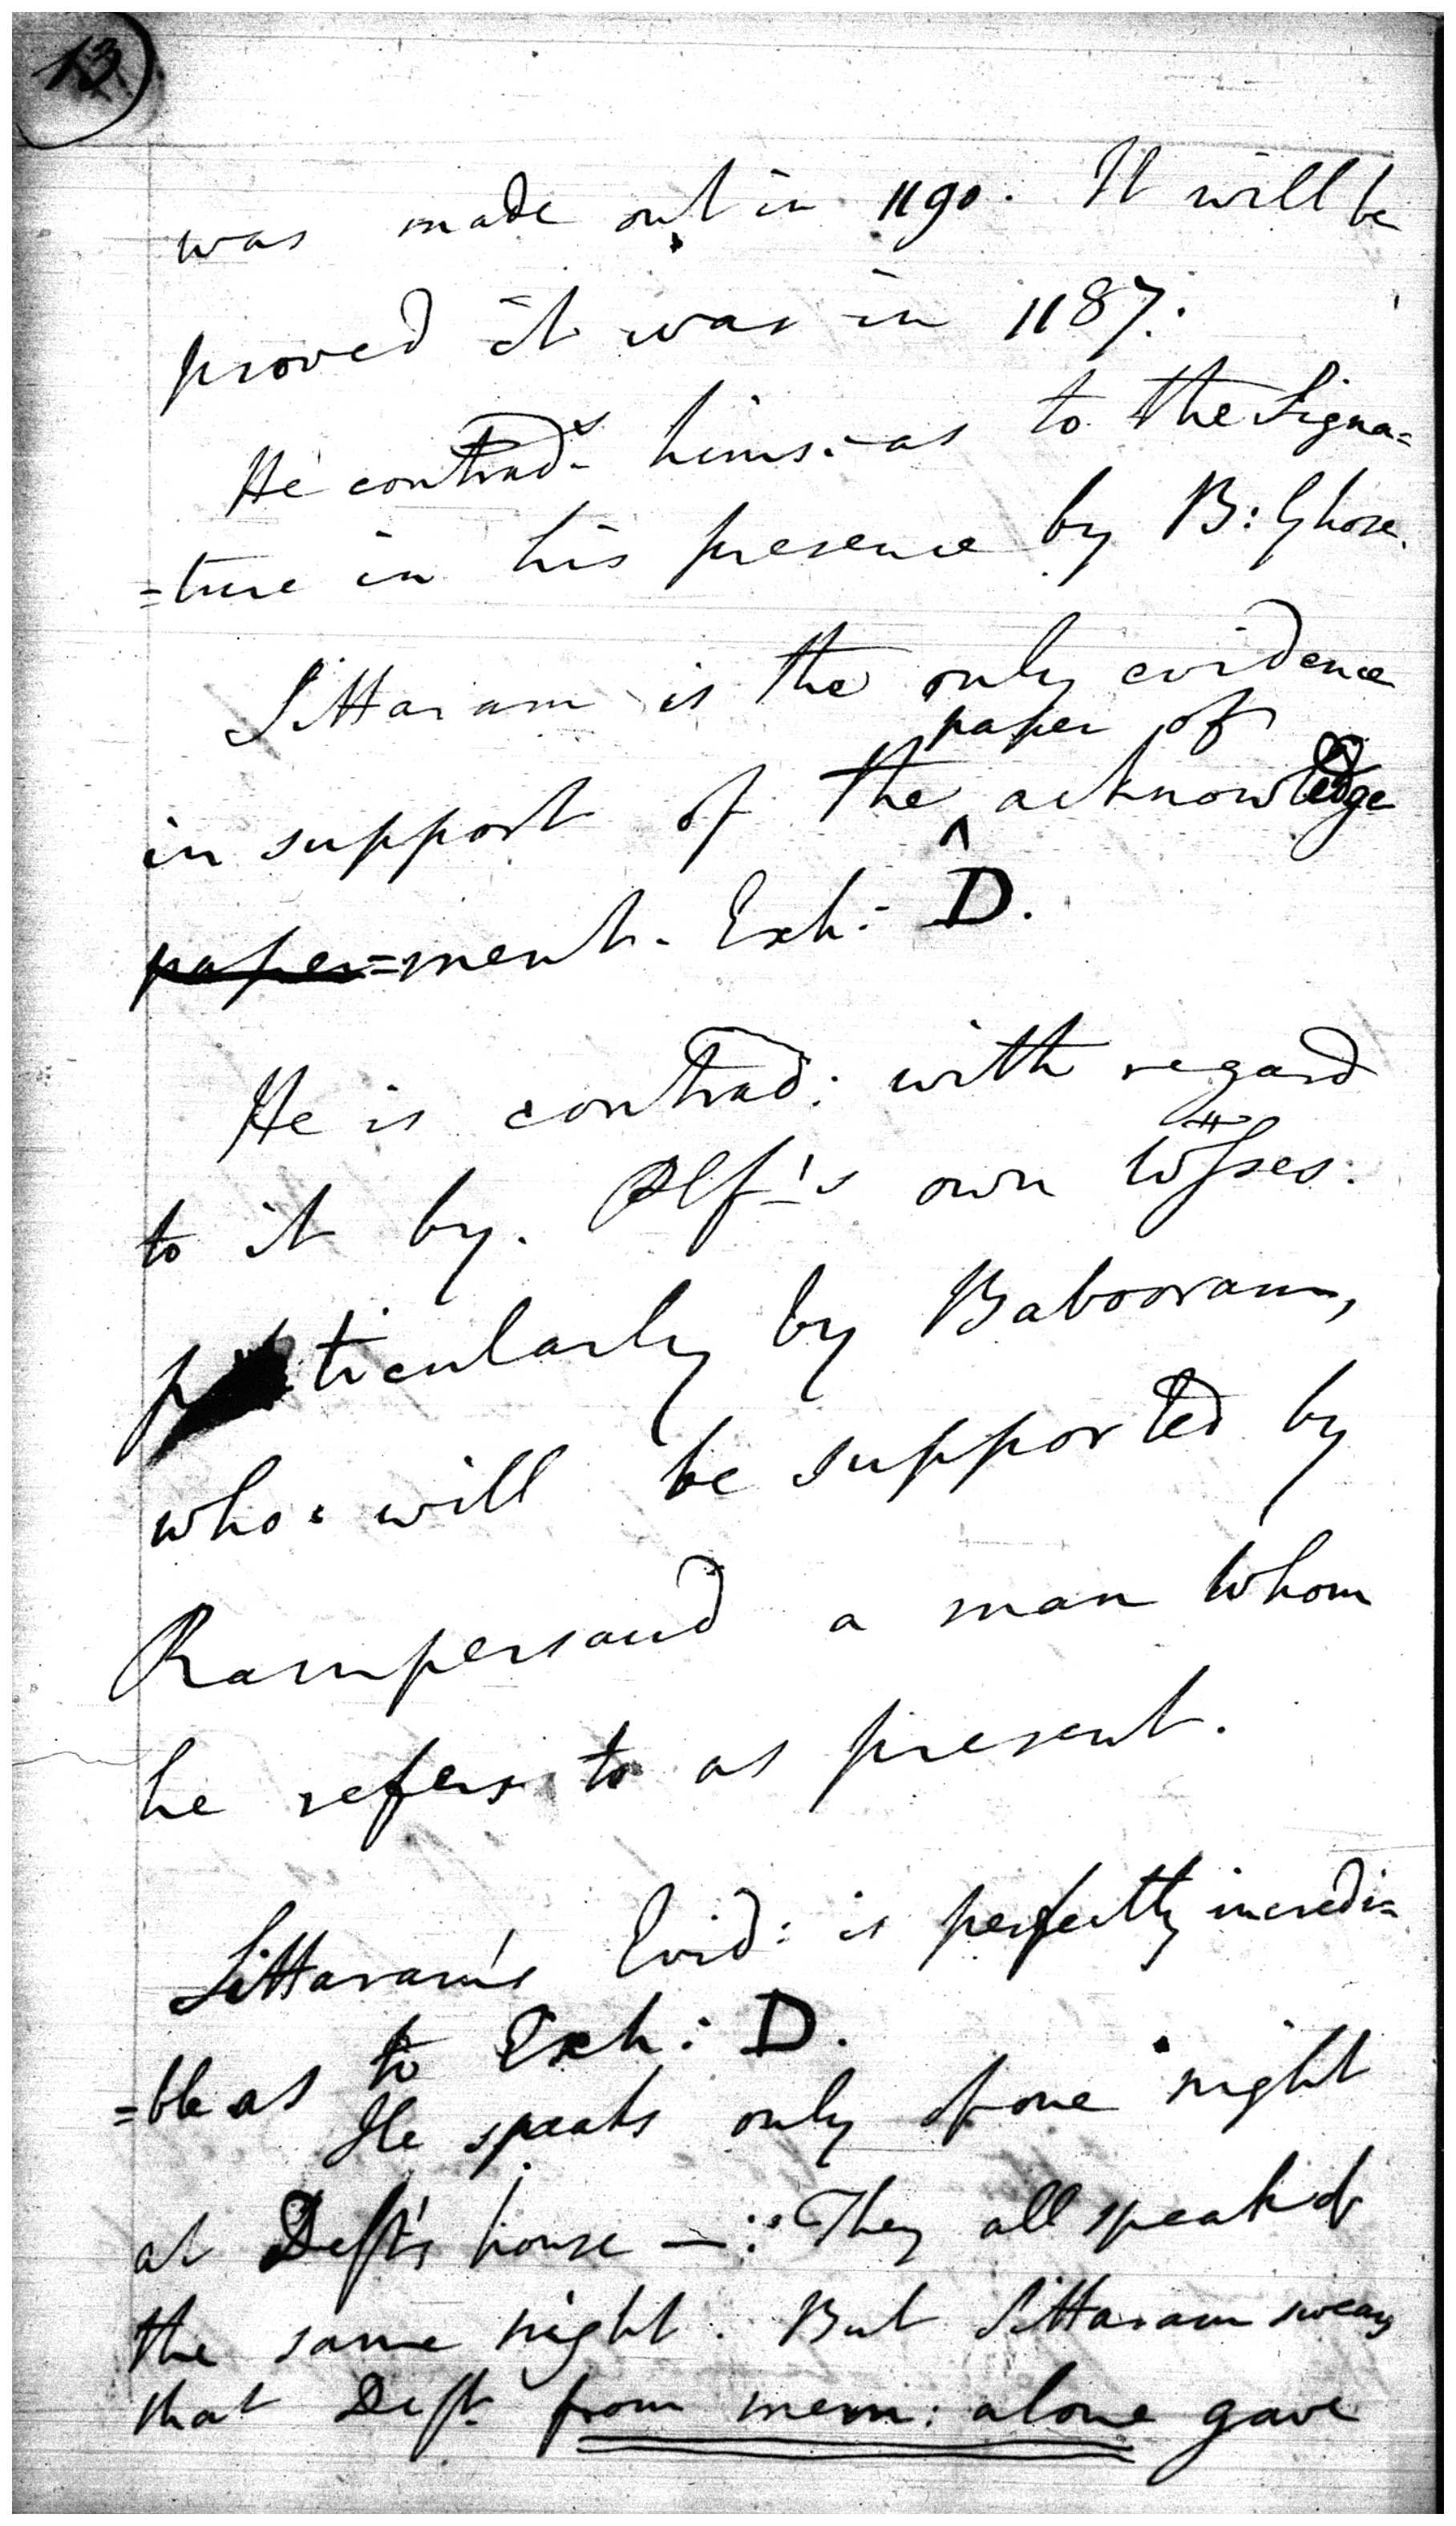 13
was made out in 1190. It will be
proved it was in 1187.
He contrad.s hims: as to the Signa=
=ture in his presence by B: Ghose.
Sittaram is the only evidence
paper of
in support of the ^ acknowledge
paper =ment. Exh: D.
He is contrad: with regard
to it by. Plf's own Wsses:
particularly by Babooram,
who will be supported by
Rampersaud a man whom
he refers to as present.
Sittaram's Evid: is perfectly incredi=
=ble as to Exh: D.
He speaks only of one night
at Deft's house —: They all speak of
the same night. But Sittaram swears
that Deft. from mem: alone gave